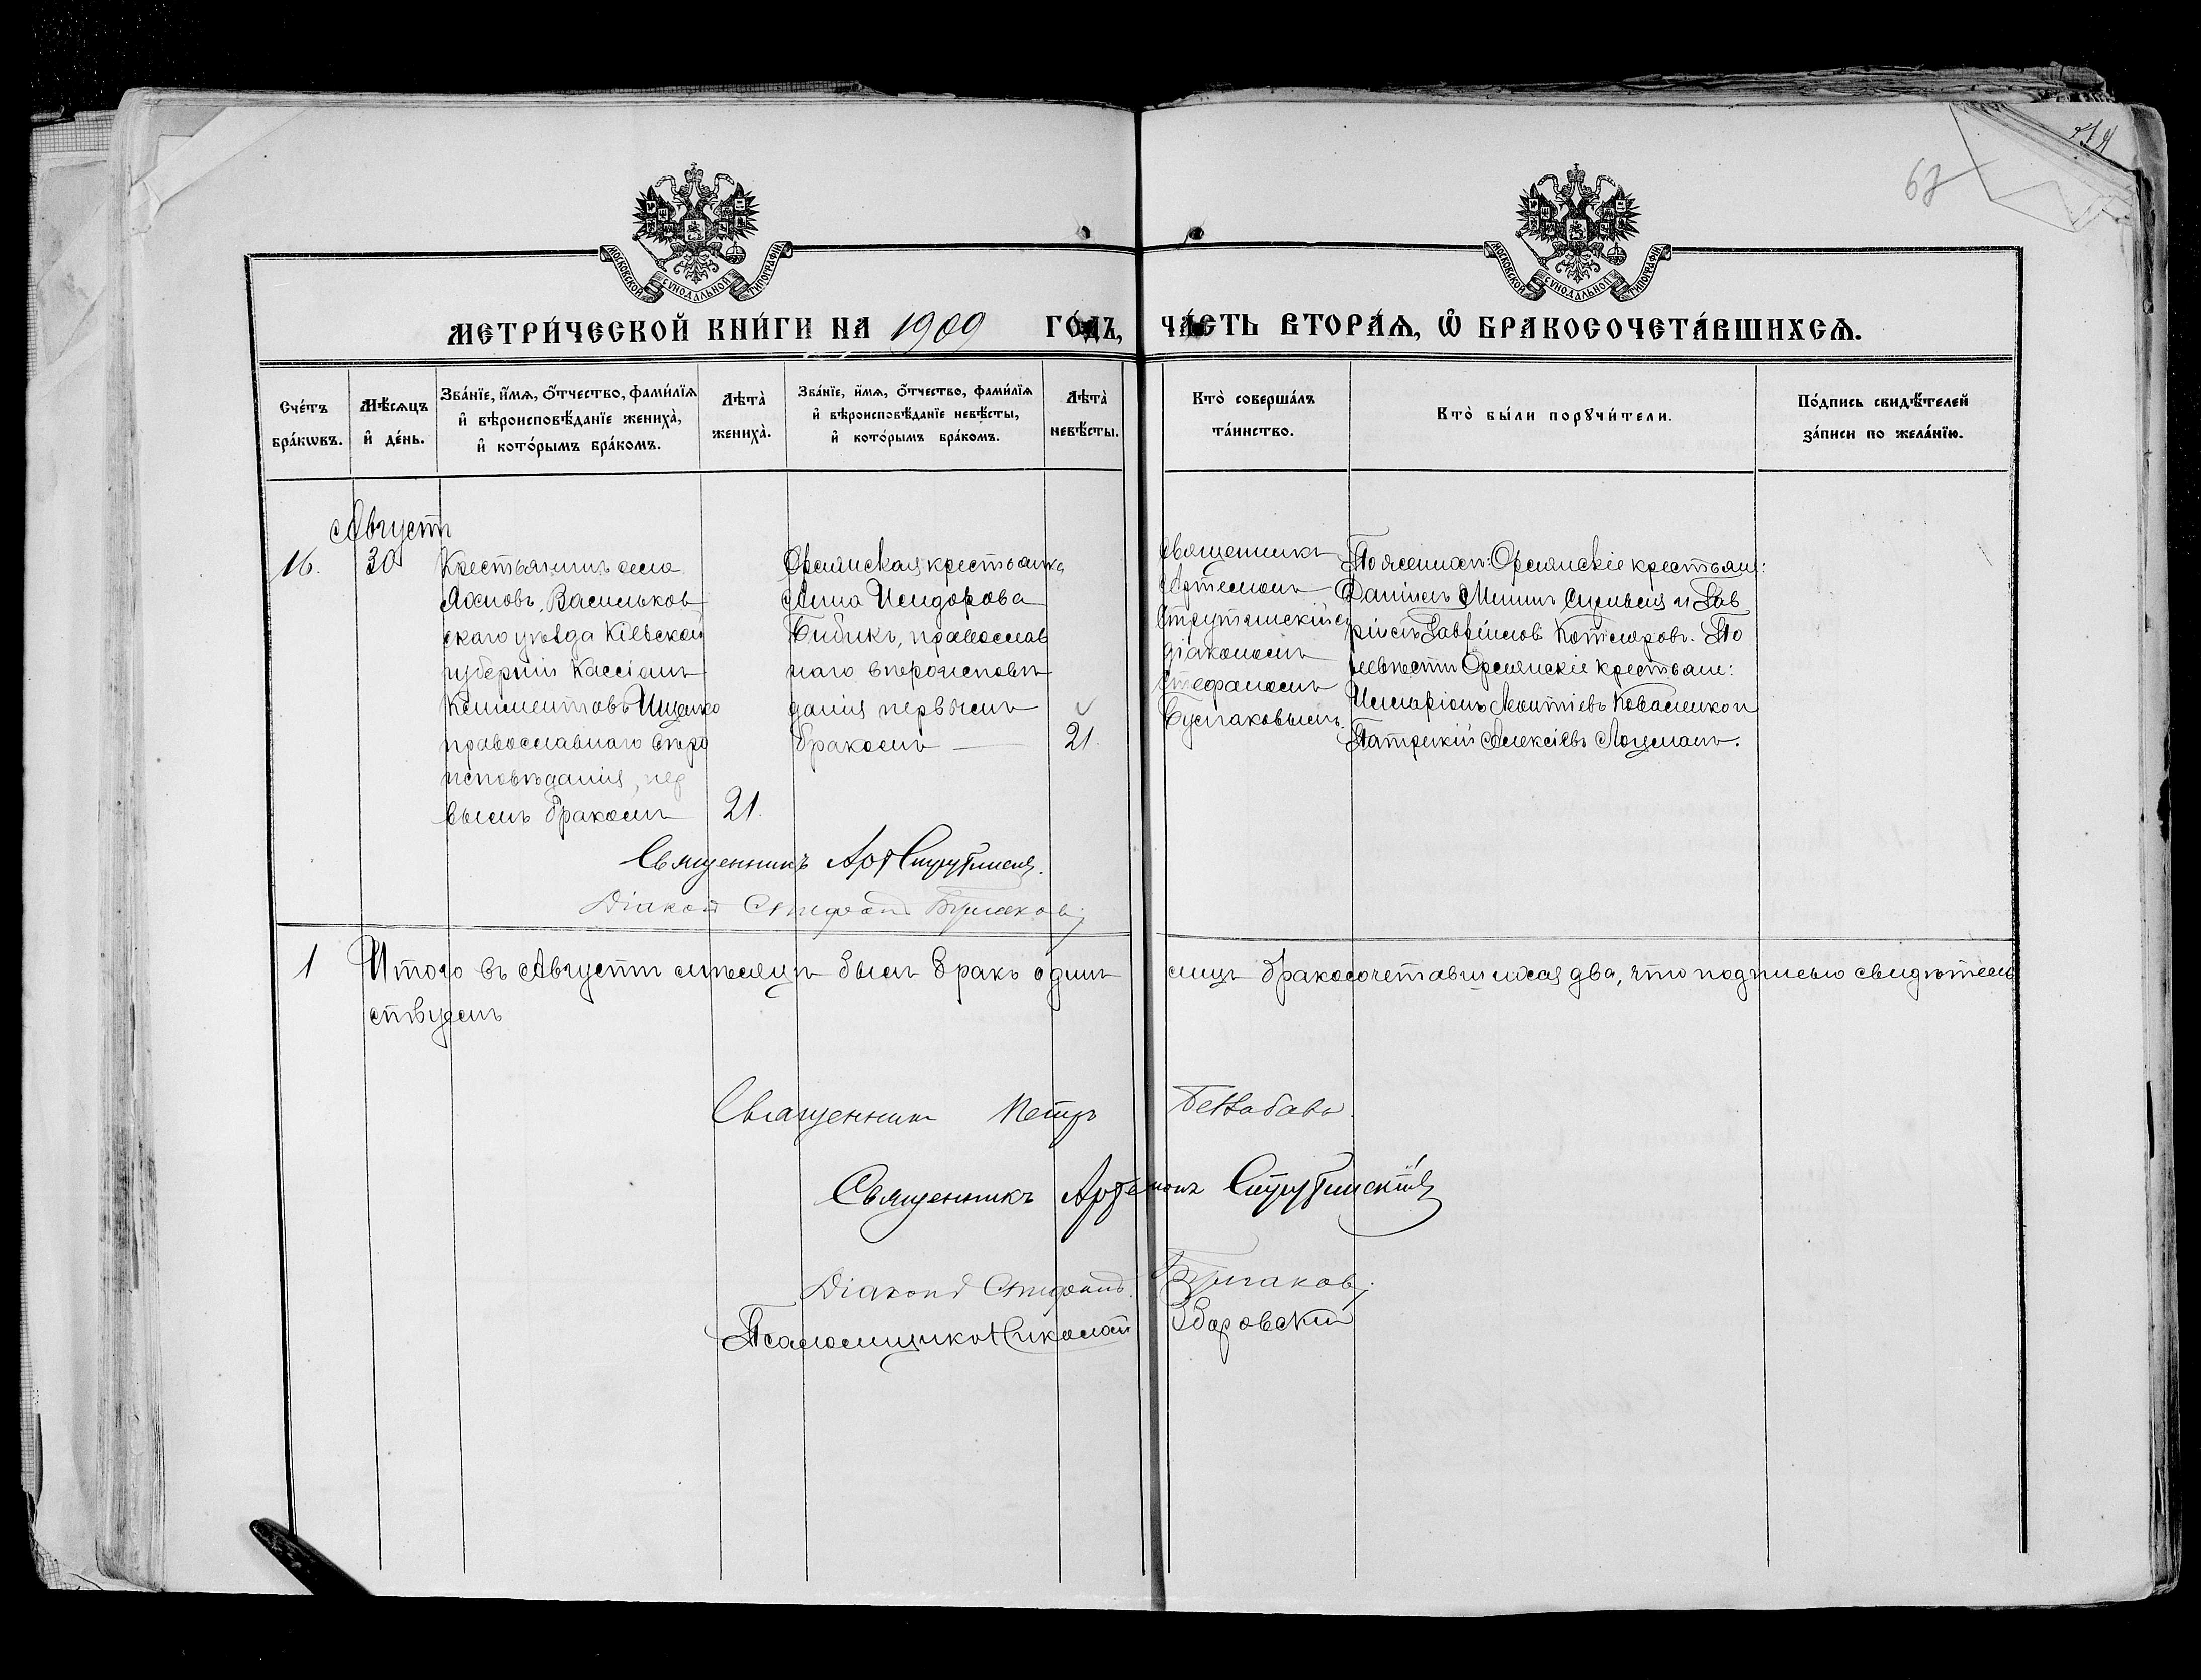 МОСКОВСКОЙ СѴНОДАЛЬНОЙ ТИПОГРАФІИ
МОСКОВСКОЙ СѴНОДАЛЬНОЙ ТИПОГРАФІИ
67
МЕТРИ́ЧЕСКОЙ КНИ́ГИ НА 1909 ГО́ДЪ, ЧА́СТЬ ВТОРА́Ѧ, Ѽ БРАКОСОЧЕТА́ВШИХСѦ.
Сче́тъ бра́кѡвъ.
Мѣ́сѧцъ и҆ де́нь.
Зва́нїе, и҆́мѧ, ѻ҆́тчество, фами́лїѧ и҆ вѣроисповѣ́данїе жениха̀, и҆ кото́рымъ бра́комъ.
Лѣта̀ жениха̀.
Зва́нїе, и҆́мѧ, ѻ҆́тчество, фами́лїѧ и҆ вѣроисповѣ́данїе невѣ́сты, и҆ кото́рымъ бра́комъ.
Лѣта̀ невѣ́сты.
Кто̀ соверша́лъ та́инство.
Кто̀ бы́ли порꙋчи́тели.
По́дпись свидѣ́телей за́писи по жела́нїю.
Августъ
16.
30
Крестьянинъ села
Яхновъ, Васильков
скаго уѣзда Кіевской
губерніи Кассіанъ
Климентовъ Ищенко
православнаго вѣро
исповѣданія, пер
вымъ бракомъ
21.
крестьянка
Анна Исидорова
Бибикъ, православ
наго вѣроисповѣ
данія первымъ
бракомъ
21.
Священникъ
Артемонъ
Струтинскій съ
діакономъ
Стефаномъ
Булгаковымъ.
По женихѣ: крестьяне:
Даніилъ Мининъ и Гав
ріилъ Гавріиловъ Котляровъ. По
невѣстѣ крестьяне:
Илларіонъ Леонтіевъ Коваленко и
Патрикій Алексіевъ Лоцманъ.
Священникъ Арт Струтинскій.
Діаконъ Стефанъ Булгаковъ
1
Итого въ Августѣ мѣсяцѣ былъ бракъ одинъ лицъ бракосочетавшихся два, что подписью свидѣтель
ствуемъ
Священникъ Петръ
Священникъ Артемонъ Струтинскій
Діаконъ Стефанъ Булгаковъ
Псаломщикъ Николай Збаровскій